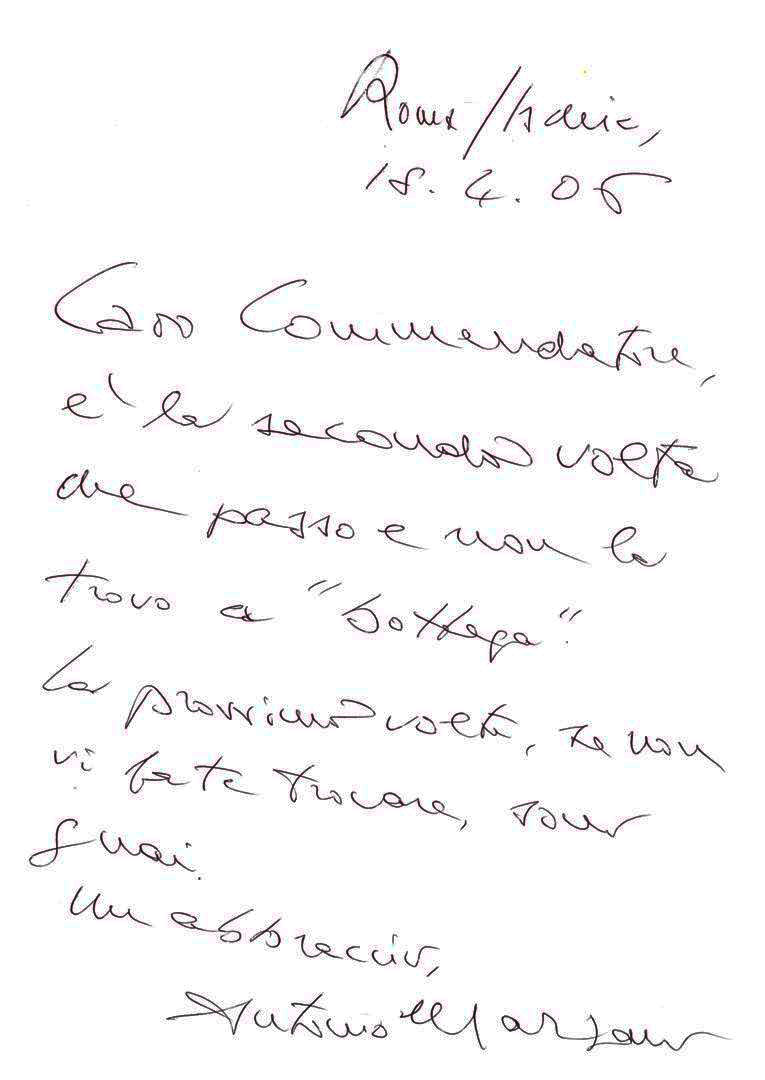 Roma
18.4.05
Caro Commendatore,
e' la seconda volta
che passo e non la
trovo a "bottega".
La prossima volta, se non
vi fate trovare, sono
guai.
Un abbraccio,
Antonio Marzano